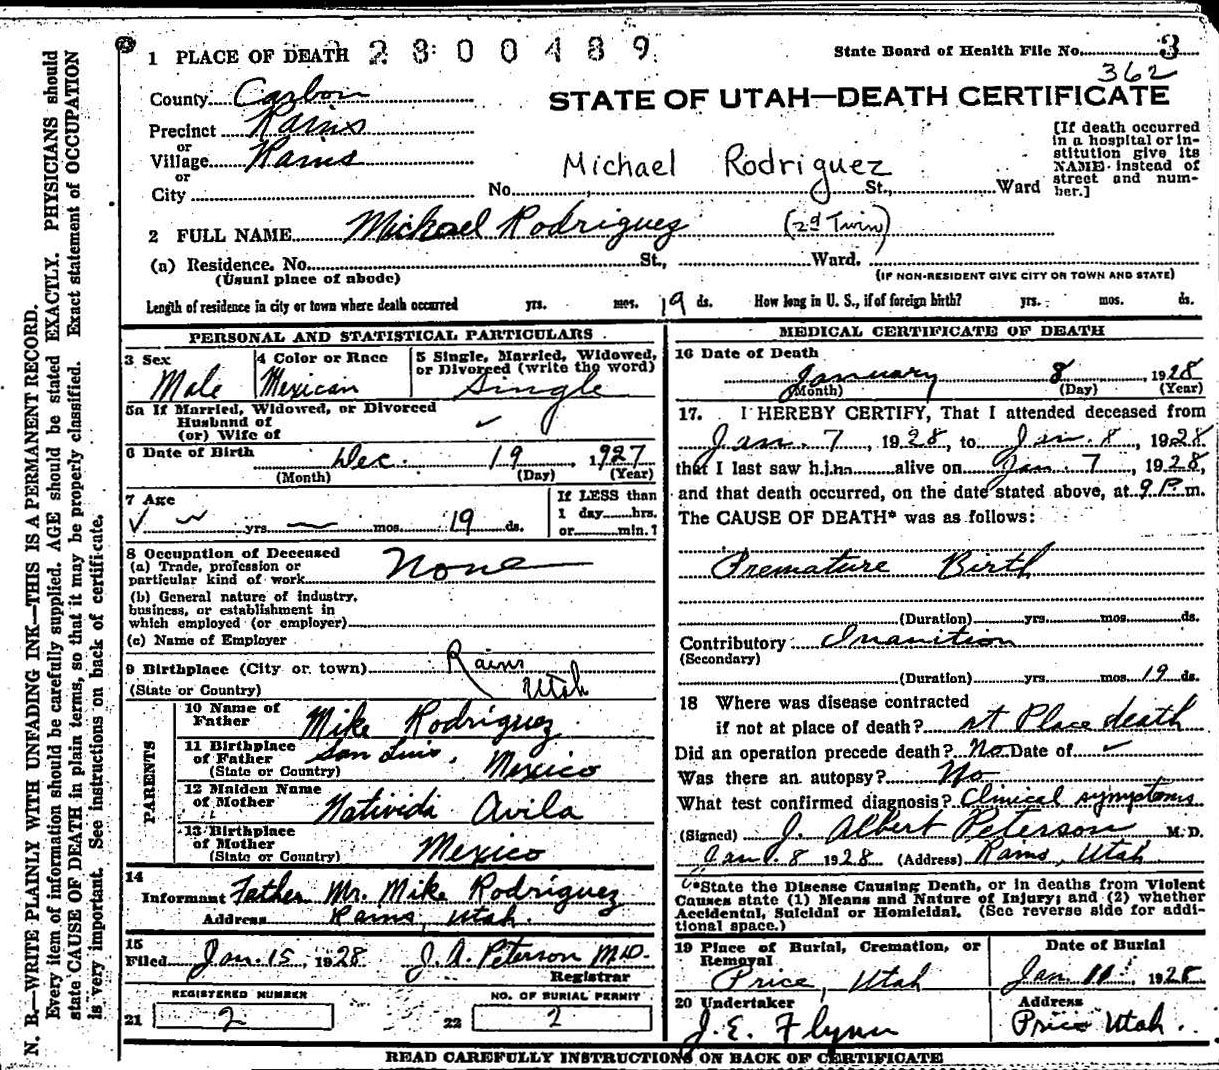 N. B.—WRITE PLAINLY WITH UNFADING INK—THIS IS A PERMANENT RECORD.
Every item of information should be carefully supplied. AGE should be stated EXACTLY. PHYSICIANS should
state CAUSE OF DEATH in plain terms, so that it may be properly classified. Exact statement of OCCUPATION
is very important. See instructions on back of certificate.
1 PLACE OF DEATH 2800489
State Board of Health File No. 3
362
County Carbon
STATE OF UTAH—DEATH CERTIFICATE
Precinct Rains
or
Village Rains
or
City
[If death occurred
in a hospital or in-
stitution give its
NAME instead of
street and num-
ber.]
Michael Rodriguez
No. St., Ward
2 FULL NAME Michael Rodriguez (2d Twin)
(a) Residence. No. St., Ward.
(Usual place of abode) (IF NON-RESIDENT GIVE CITY OR TOWN AND STATE)
Length of residence in city or town where death occurred yrs. mos. 19 ds. How long in U. S., if of foreign birth? yrs. mos. ds.
PERSONAL AND STATISTICAL PARTICULARS
3 Sex
Male
4 Color or Race
Mexican
5 Single, Married, Widowed,
or Divorced (write the word)
Single
5a If Married, Widowed, or Divorced
Husband of
(or) Wife of
6 Date of Birth Dec. 19, 1927
(Month) (Day) (Year)
7 Age
yrs. mos. 19 ds.
If LESS than
1 day hrs.
or min.?
8 Occupation of Deceased
(a) Trade, profession or
particular kind of work None
(b) General nature of industry,
business, or establishment in
which employed (or employer)
(c) Name of Employer
9 Birthplace (City or town) Rains
(State or Country) Utah
PARENTS
10 Name of
Father Mike Rodriguez
11 Birthplace
of Father San Luis, Mexico
(State or Country)
12 Maiden Name
of Mother Natividi Avila
13 Birthplace
of Mother
(State or Country) Mexico
14
Informant Father Mr. Mike Rodriguez
Address Rains, Utah.
15
Filed Jan. 15, 1928 J. A. Peterson M.D.
Registrar
REGISTERED NUMBER
21 2
NO. OF BURIAL PERMIT
22 2
MEDICAL CERTIFICATE OF DEATH
16 Date of Death
January 8, 1928
(Month) (Day) (Year)
17. I HEREBY CERTIFY, That I attended deceased from
Jan. 7, 1928, to Jan. 8, 1928
that I last saw him alive on Jan. 7, 1928,
and that death occurred, on the date stated above, at 9 P. m.
The CAUSE OF DEATH* was as follows:
Premature Birth
(Duration) yrs. mos. ds.
Contributory Inanition
(Secondary)
(Duration) yrs. mos. 19 ds.
18 Where was disease contracted
if not at place of death? at Place death
Did an operation precede death? No Date of
Was there an autopsy? No
What test confirmed diagnosis? Clinical symptoms
(Signed) J. Albert Peterson M. D.
Jan. 8 1928 (Address) Rains, Utah
*State the Disease Causing Death, or in deaths from Violent
Causes state (1) Means and Nature of Injury; and (2) whether
Accidental, Suicidal or Homicidal. (See reverse side for addi-
tional space.)
19 Place of Burial, Cremation, or
Removal
Price, Utah
Date of Burial
Jan 11, 1928
20 Undertaker
J. E. Flynn
Address
Price Utah.
READ CAREFULLY INSTRUCTIONS ON BACK OF CERTIFICATE